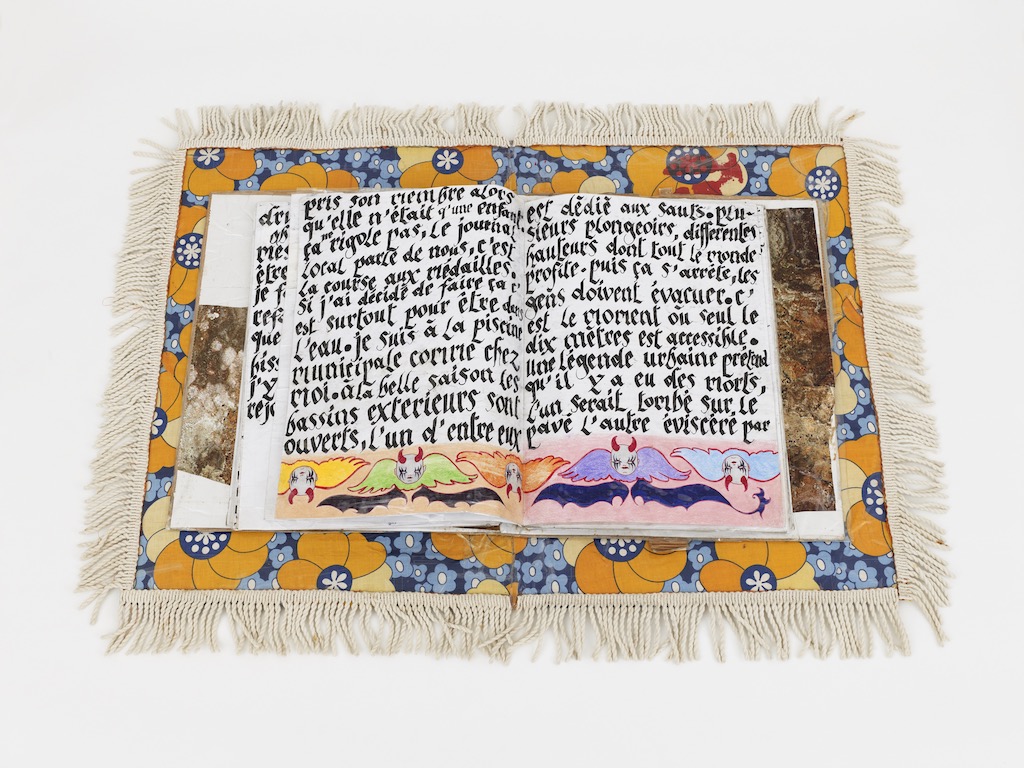 être
je f
que
j'y
pris son membre alors
qu'elle n'était qu'une enfant.
ça me rigole pas. Le journal
local parle de nous, c'est
la course aux médailles.
Si j'ai décidé de faire ça c'
est surtout pour être dans
l'eau. Je suis à la piscine
municipale comme chez
moi. à la belle saison les
bassins extérieurs sont
ouverts, l'un d'entre eux
est dédié aux sauts. Plu-
sieurs plongeoirs, differentes
hauteurs dont tout le monde
profite. Puis ça s'arrête, les
gens doivent évacuer. c'
est le moment où seul le
dix mètres est accessible.
une légende urbaine prétend
qu'il y a eu des morts,
l'un serait tombé sur le
pavé l'autre éviscéré par